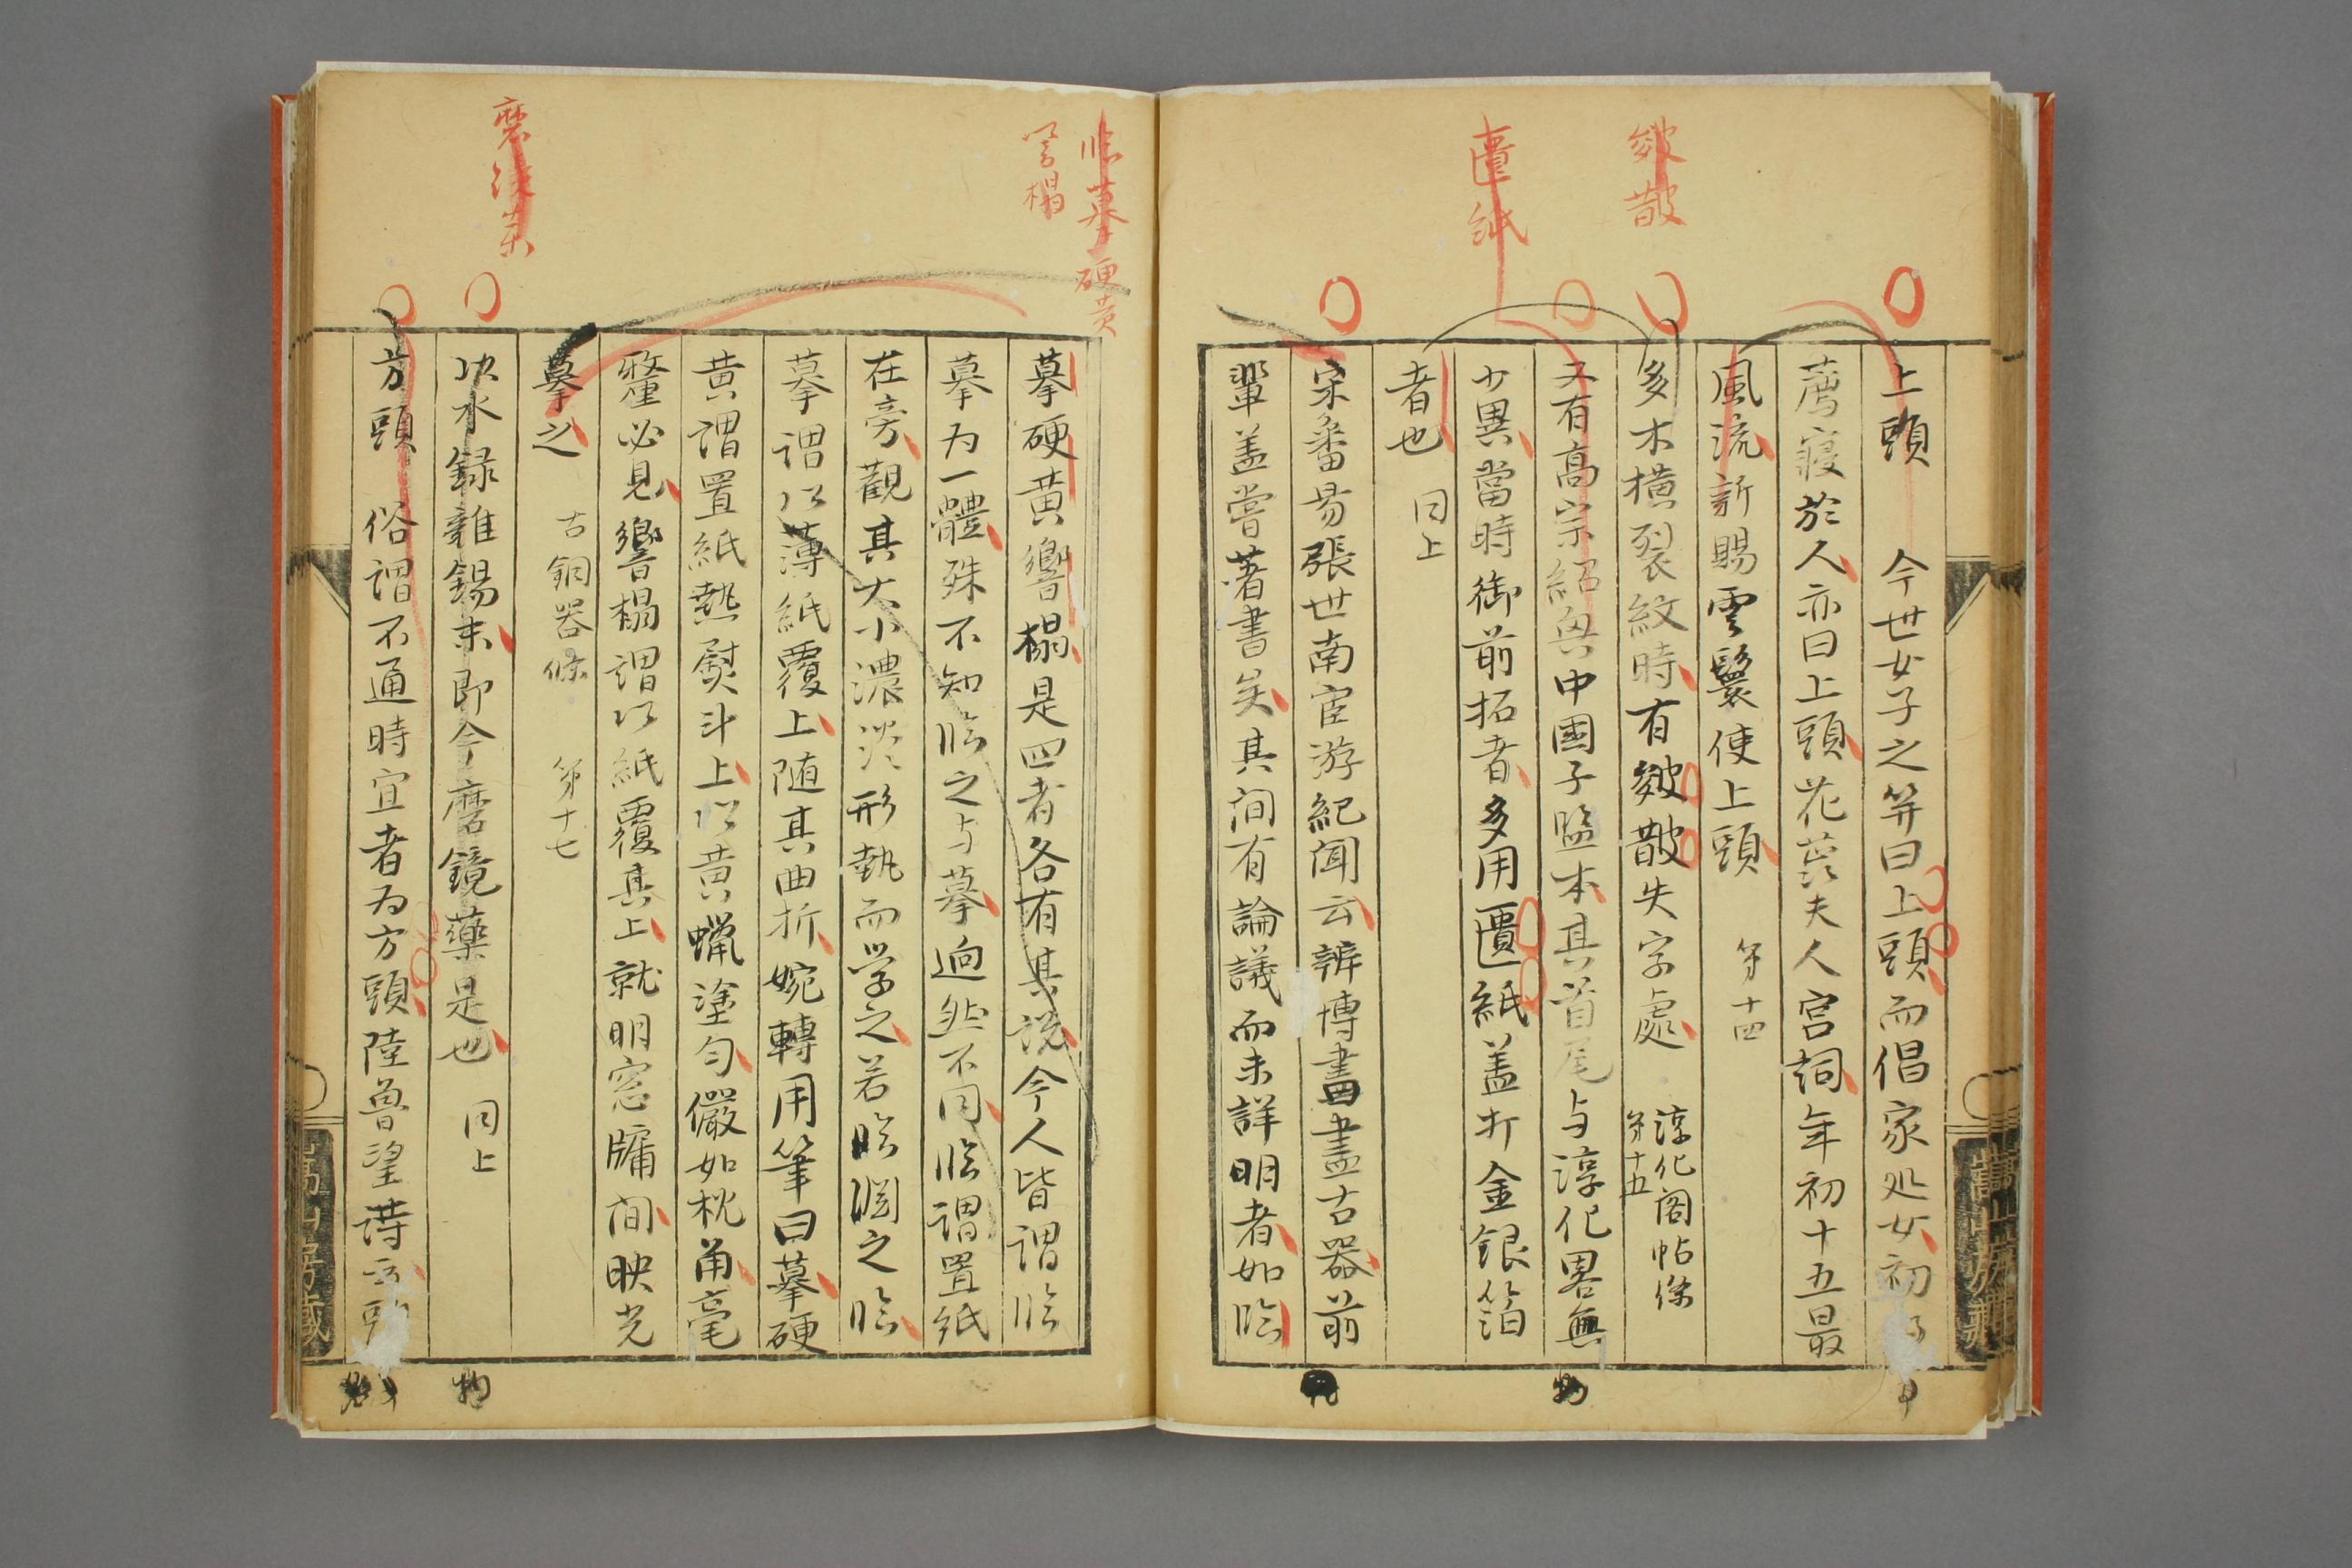 皴散
匱紙
上頭 今世女子之笄曰上頭而倡家処女初
薦寝於人亦曰上頭花蕊夫人宮詞年初十五最
風流新賜雲鬟使上頭 第十四
多木横裂紋時有皴散失字處 淳化閣帖條 第十五
又有高宗紹興中國子監本其首尾与淳化畧無
少異當時御前拓者多用匱紙盖打金銀箔
者也 同上
宋番昜張世南宦游紀聞云辨博書畫古器前
輩盖嘗著書矣其間有論議而未詳明者如臨
臨摹硬黄
響榻
摹硬黄響榻是四者各有其説今人皆謂臨
摹为一體殊不知臨之与摹迥然不同臨謂置紙
在旁觀其大小濃淡形埶而学之若臨淵之臨
摹謂以薄紙覆上随其曲折婉轉用筆曰摹硬
黄謂置紙熱熨斗上以黄蠟塗匀儼如枕角毫
釐必見響榻謂以紙覆其上就明窓牖間映光
摹之 古銅器條 第十七
水録雜錫末即今磨鏡藥是也 同上
方頭 俗謂不通時宜者为方頭陸魯望詩云頭
物
物
萬山房藏